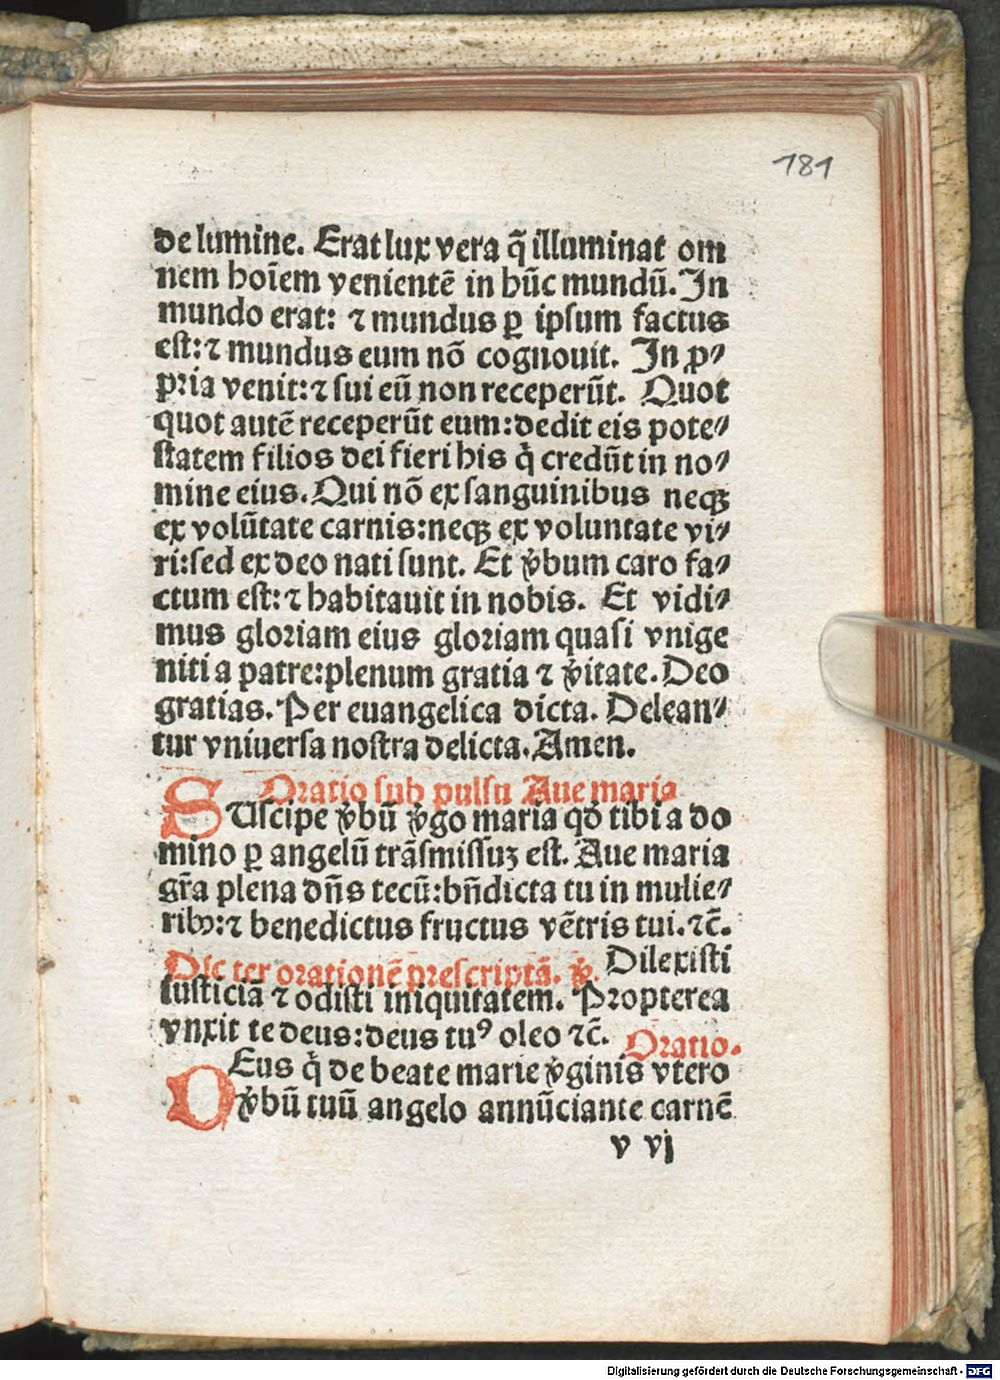 181
de lumine. Erat lux vera q̃ illuminat om
nem hoĩem venientẽ in hũc mundũ. In
mundo erat: ⁊ mundus ꝑ ipſum factus
eſt: ⁊ mundus eum nõ cognouit. In ꝓ⸗
pria venit: ⁊ ſui eũ non receperũt. Quot
quot autẽ receperũt eum: dedit eis pote⸗
ſtatem filios dei fieri his q̇ credũt in no⸗
mine eius. Qui nõ ex ſanguinibus neqꝫ
ex volũtate carnis: neqꝫ ex voluntate vi⸗
ri: ſed ex deo nati ſunt. Et v̓bum caro fa⸗
ctum eſt: ⁊ habitauit in nobis. Et vidi⸗
mus gloꝛiam eius gloꝛiam quaſi vnige
niti a patre: plenum gratia ⁊ v̓itate. Deo
gratias. Per euangelica dicta. Delean⸗
tur vniuerſa noſtra delicta. Amen.
Oratio ſub pulſu Aue maria
SUſcipe v̓bũ v̓go maria qđ tibi a do
mino ꝑ angelũ trãſmiſſuꝫ eſt. Aue maria
gr̃a plena dñs tecũ: bñdicta tu in mulie⸗
ribꝰ: ⁊ benedictus fructus vẽtris tui. ⁊c̃.
Dic ter orationẽ preſcriptã. v̓. Dilexiſti
iuſticiã ⁊ odiſti iniquitatem. Propterea
vnxit te deus: deus tuꝰ oleo ⁊c̃. Oratio.
DEus q̇ de beate marie v̓ginis vtero
v̓bũ tuũ angelo annũciante carnẽ
v vj
Digitalisierung gefördert durch die Deutsche Forschungsgemeinschaft - DFG